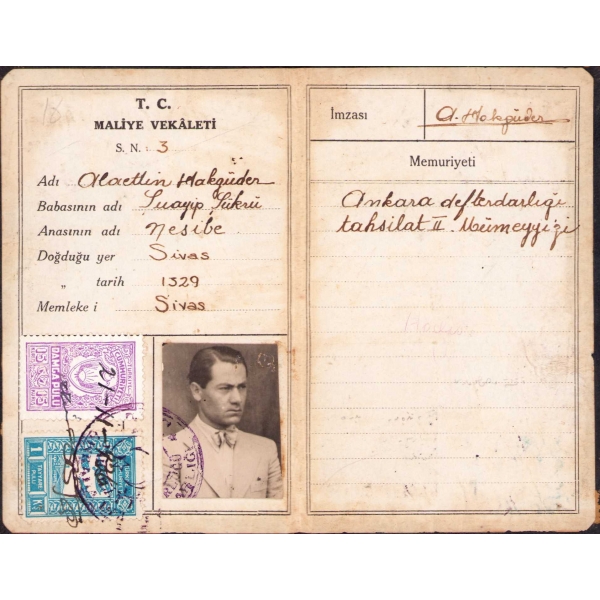 T. C.
MALİYE VEKÂLETİ
S. N. : 3
Adı Alaettin Hakgüder
Babasının adı Şuayip Şükrü
Anasının adı Nesibe
Doğduğu yer Sivas
„ tarih 1329
Memleke i Sivas
DAMGA PULU
1
İmzası A. Hakgüder
Memuriyeti
Ankara defterdarlığı
tahsilat II. Mümeyyizi